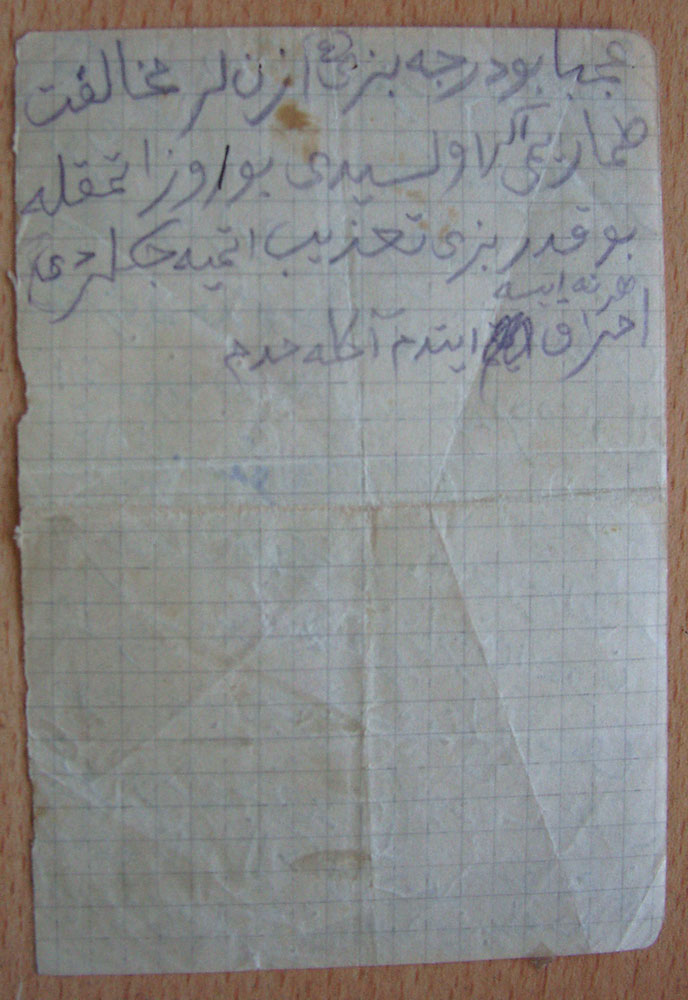 عجبا بو درجه بزی ازنلر مخالفت
طماریمی اکر اولسیدی بو اوزاتمقله
بو قدر بزی تعذیب اتمیه جکلردی
هرنه ایسه
احراق ایتدم آکله مدم